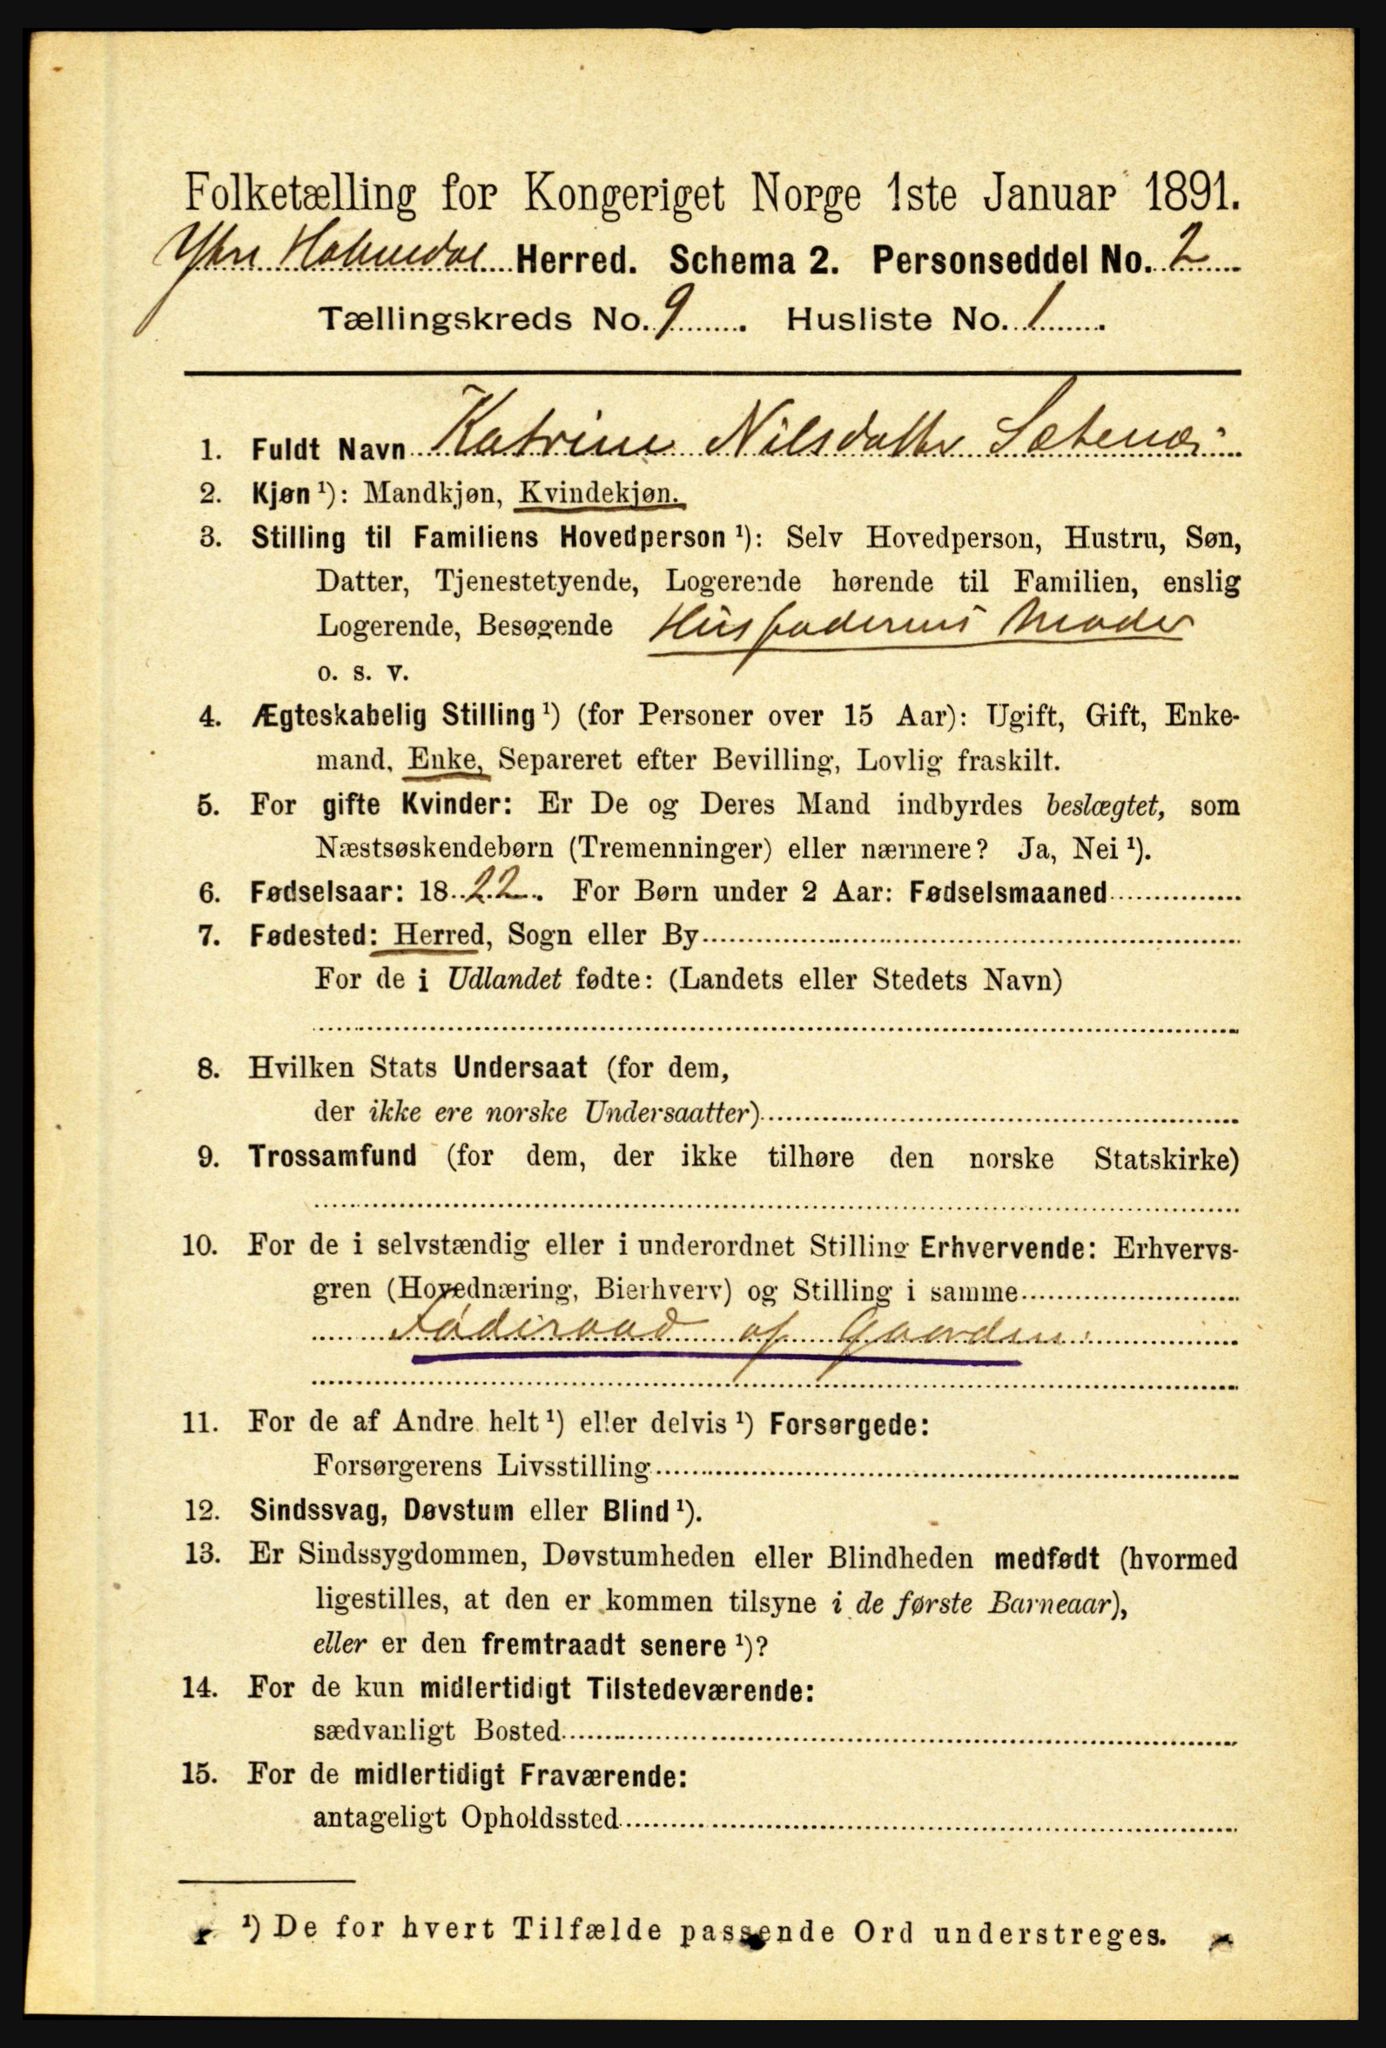 Folketælling for Kongeriget Norge 1ste Januar 1891.
Ytre Holmedal Herred. Schema 2. Personseddel No. 2
Tællingskreds No. 9. Husliste No. 1.
1. Fuldt Navn Katrine Nilsdatter Sætenæs
2. Kjøn ¹): Mandkjøn, Kvindekjøn.
3. Stilling til Familiens Hovedperson ¹): Selv Hovedperson, Hustru, Søn,
Datter, Tjenestetyende, Logerende hørende til Familien, enslig
Logerende, Besøgende Husfaderens Moder
o. s. v.
4. Ægteskabelig Stilling ¹) (for Personer over 15 Aar): Ugift, Gift, Enke-
mand, Enke, Separeret efter Bevilling, Lovlig fraskilt.
5. For gifte Kvinder: Er De og Deres Mand indbyrdes beslægtet, som
Næstsøskendebørn (Tremenninger) eller nærmere? Ja, Nei ¹).
6. Fødselsaar: 1822. For Børn under 2 Aar: Fødselsmaaned
7. Fødested: Herred, Sogn eller By
For de i Udlandet fødte: (Landets eller Stedets Navn)
8. Hvilken Stats Undersaat (for dem,
der ikke ere norske Undersaatter)
9. Trossamfund (for dem, der ikke tilhøre den norske Statskirke)
10. For de i selvstændig eller i underordnet Stilling Erhvervende: Erhvervs-
gren (Hovednæring, Bierhverv) og Stilling i samme
Føderaad af Gaarden.
11. For de af Andre helt ¹) eller delvis ¹) Forsørgede:
Forsørgerens Livsstilling
12. Sindssvag, Døvstum eller Blind ¹).
13. Er Sindssygdommen, Døvstumheden eller Blindheden medfødt (hvormed
ligestilles, at den er kommen tilsyne i de første Barneaar),
eller er den fremtraadt senere ¹)?
14. For de kun midlertidigt Tilstedeværende:
sædvanligt Bosted
15. For de midlertidigt Fraværende:
antageligt Opholdssted
¹) De for hvert Tilfælde passende Ord understreges.